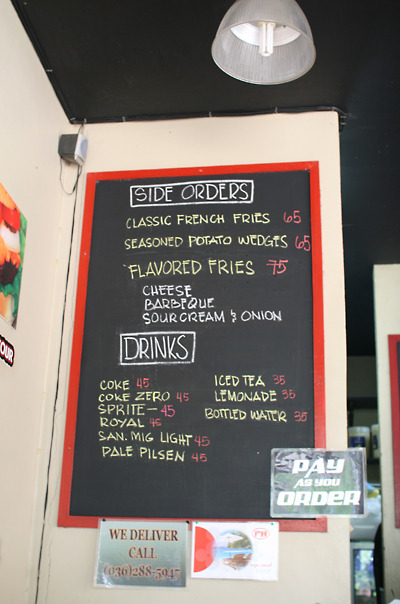 SIDE ORDERS
CLASSIC FRENCH FRIES 65
SEASONED POTATO WEDGES 65
FLAVORED FRIES 75
CHEESE
BARBEQUE
SOUR CREAM & ONION
DRINKS
COKE 45
COKE ZERO 45
SPRITE - 45
ROYAL 45
SAN. MIG LIGHT 45
PALE PILSEN 45
ICED TEA 35
LEMONADE 35
BOTTLED WATER 35
PAY
AS YOU
ORDER
WE DELIVER
CALL
(036)288-5947